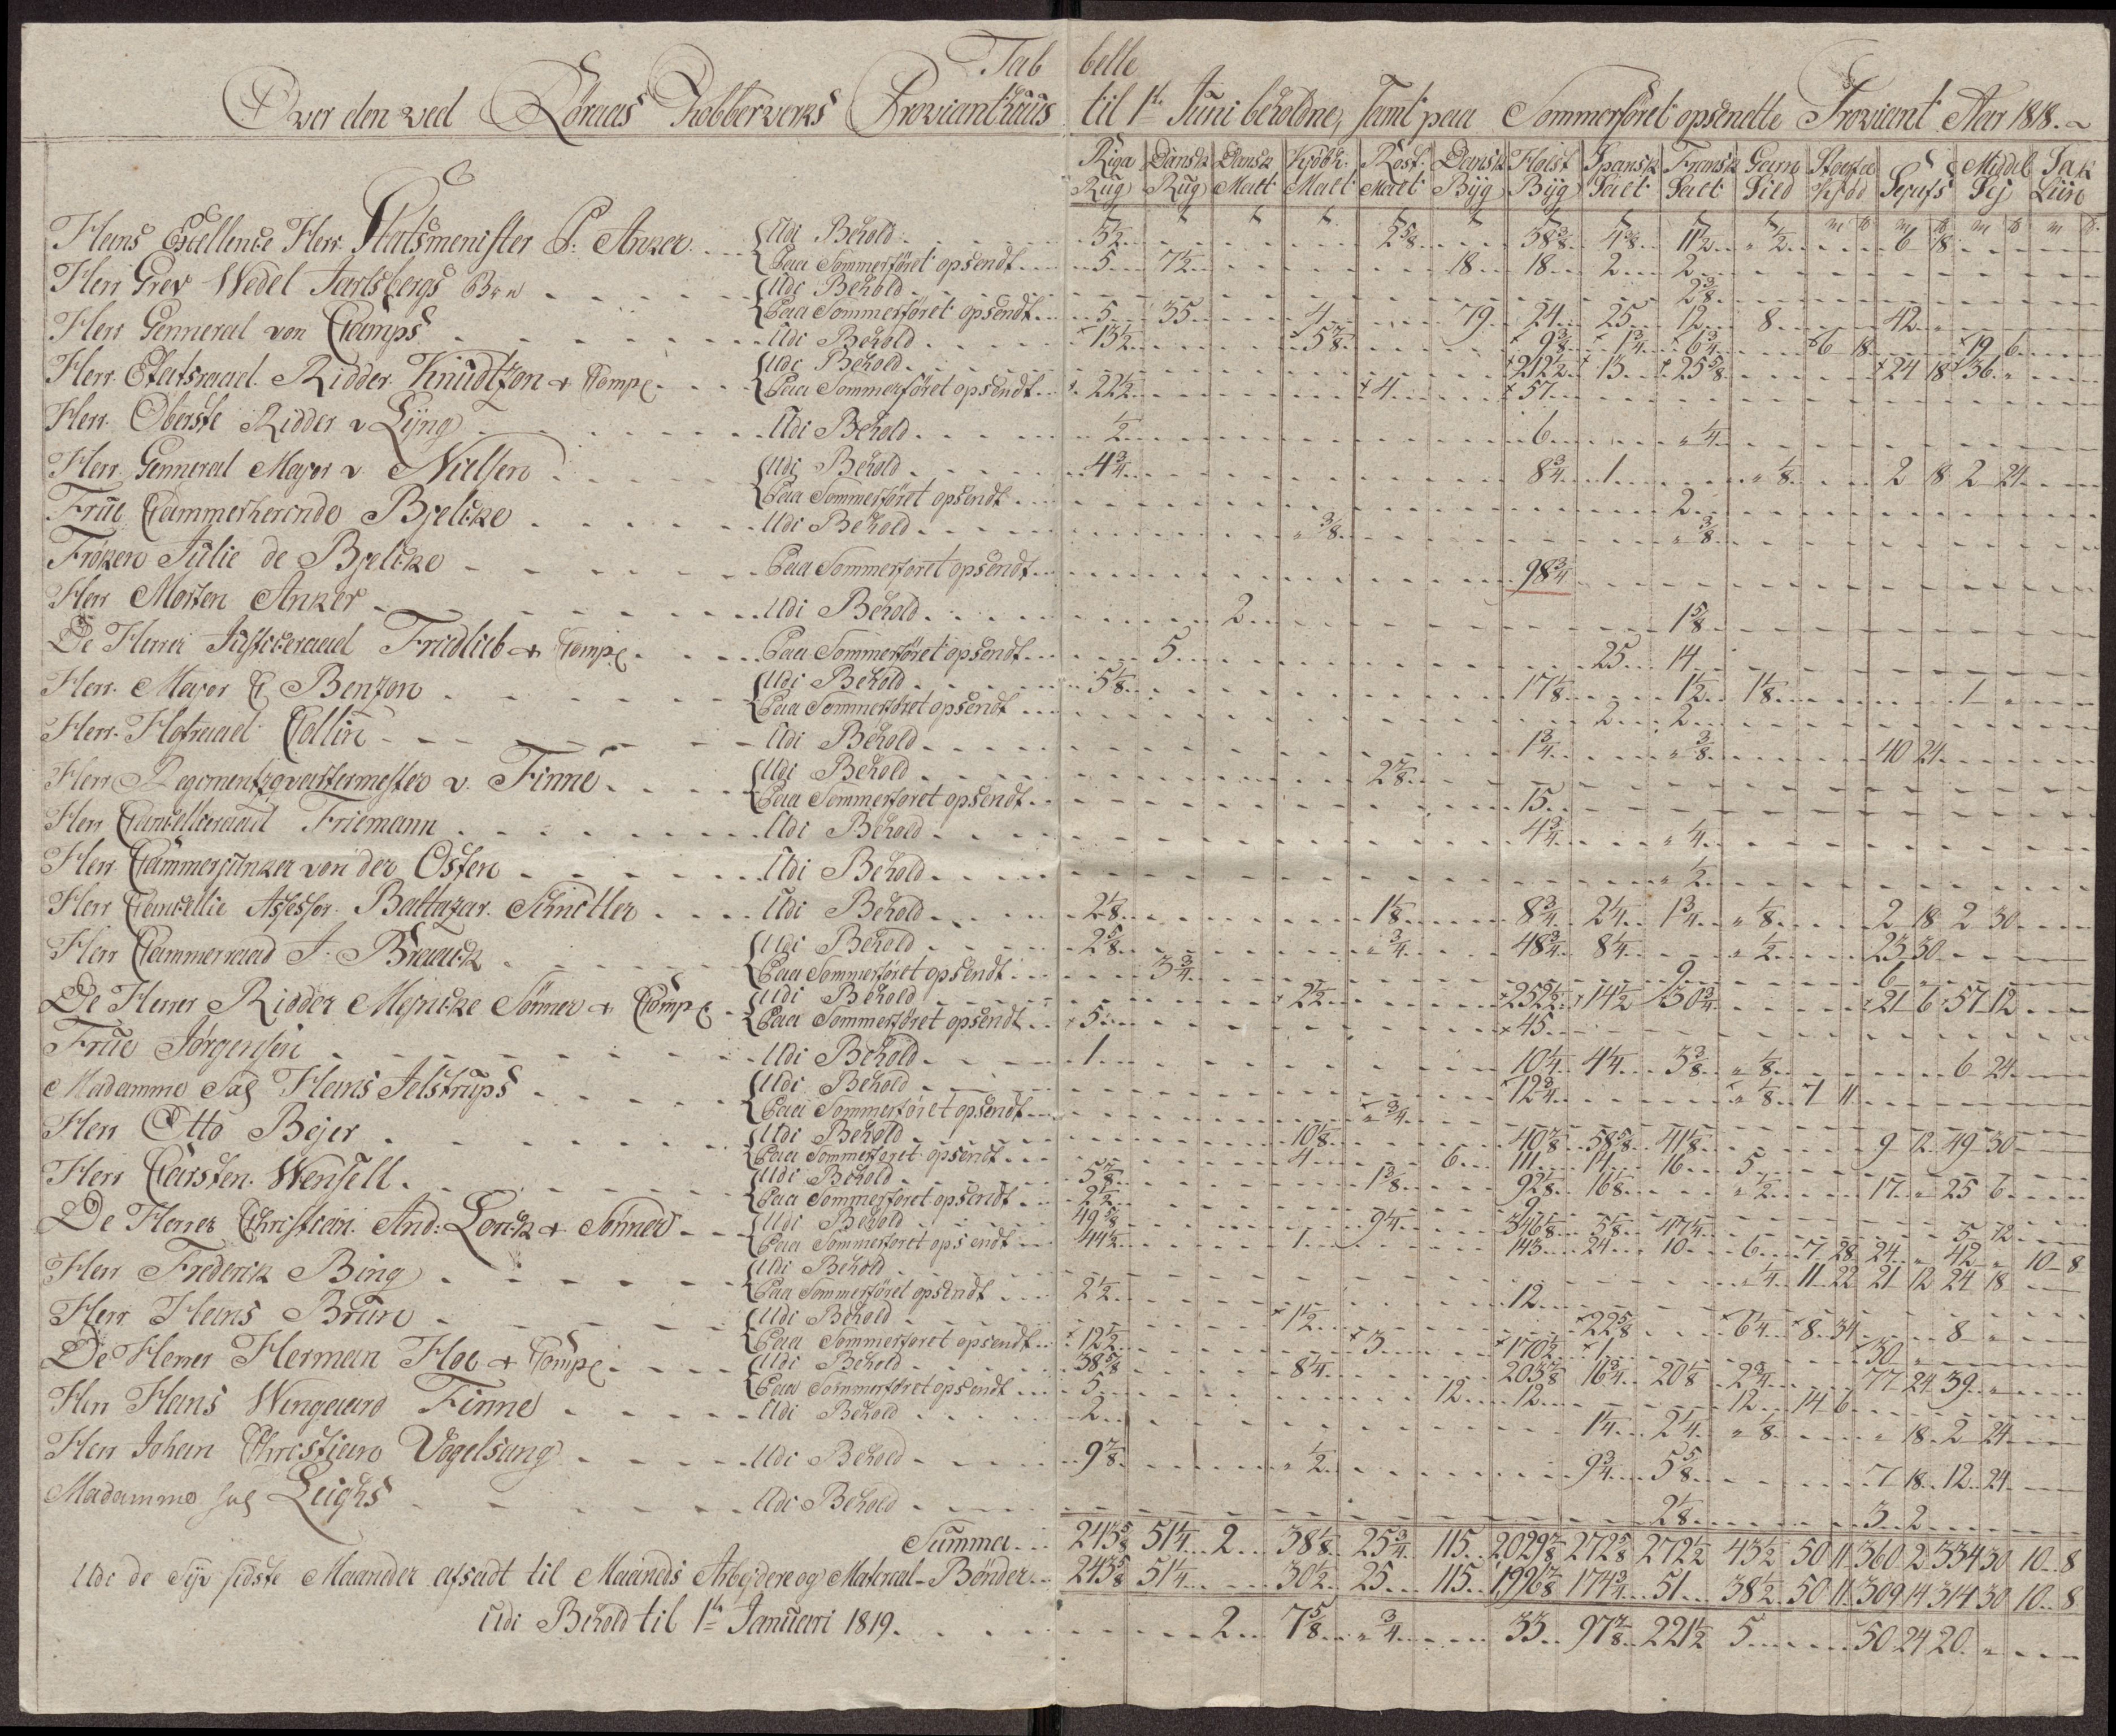 Tabbelle
Over den ved Röraas Kobberverks Provianthuus til 1ste Juni beholdne, samt paa Sommerföret opsendte Proviant Aar 1818.
Riga Rug Dansk Rug Dansk Malt Kjöbh. Malt Rost. Malt Dansk Byg Holst Byg Spansk Salt Fransk Salt Garn Sild Middel Sej Lüin
Hans Excellence Herr Statsmenister P. Anker Udi Behold 5½ 2⅝ 38⅜ 4⅜ 11½ " ½ 6 18
Paa Sommerföret opsendt 5 7½ 18 18 2 2
Herr Grev Wedel Jarlsbergs Udi Behold 2⅜
Paa Sommerföret opsendt 5 35 4 79 24 25 12 8 42 "
Herr Genneral von Udi Behold 13½ 5⅞ 9¾ 1¾ 6¾ 6 18 19 6
Herr Etatsraad Ridder Knudtzon & Comp. Udi Behold 212½ 13 25⅝ 24 18 36 "
Paa Sommerföret opsendt 22½ 4 57
Herr Oberste Ridder v Lyng Udi Behold ½ 6 " ¼
Herr Genneral Mayor v. Nielsen Udi Behold 4¾ 8¾ 1 " ⅛ 2 18 2 24
Paa Sommerföret opsendt 2
Frue Cammerherinde Bjelcke Udi Behold " ⅜ " ⅜
Fröken Julie de Bjelcke Paa Sommerföret opsendt 98¾
Herr Morten Anker Udi Behold 2 1⅝
De Herrer Justiceraad Friedlieb & Comp. Paa Sommerföret opsendt 5 25 14
Herr Mayor Benzon Udi Behold 5⅛ 17⅛ 1½ 1⅛ 1 "
Paa Sommerföret opsendt 2 2
Herr Hofraad Collin Udi Behold 1¾ " ⅜ 40 24
Herr Regimentzqvartermester v. Finne Udi Behold 2⅞
Paa Sommerföret opsendt 15
Herr Cancelleraad Friemann Udi Behold 4¾ " ¼
Herr Cammerjunker von der Osten Udi Behold " ½
Herr Cancellie Assessor Baltazar Schnitler Udi Behold 2⅛ 1⅛ 8¾ 2¼ 1¾ " ⅛ 2 18 2 30
Herr Cammerraad J. Braack Udi Behold 2⅝ " ¾ 48¾ 8¼ " ½ 23 30
Paa Sommerföret opsendt 3¾ 9 6 "
De Herrer Ridder Mejncke Sönner & Comp Udi Behold 2½ 252½ 14½ 130¾ 21 6 57 12
Paa Sommerföret opsendt 5 45
Frue Jörgensen Udi Behold 1 10¼ 4¼ 3⅜ " ⅛ 6 24
Madamme Sal Hans Jelstrups Udi Behold 12¾ " ⅛ 7 11
Paa Sommerföret opsendt " ¾
Herr Otto Bejer Udi Behold 10⅛ 40⅞ 58⅝ 41⅛ 9 12 49 30
Paa Sommerföret opsendt 4 6 111 11 16 5
Herr Carsten Wensell Udi Behold 5⅞ 1⅜ 92⅛ 16⅛ " ½ 17 " 25 6
Paa Sommerföret opsendt 2½ 9
De Herrer Christian And: Lorck & Sönner Udi Behold 49⅝ 9¼ 346⅛ 5⅛ 47¼ 5 12
Paa Sommerföret opsendt 44½ 1 143 24 10 6 7 28 24 " 42 " 10 8
Herr Frederik Bing Udi Behold " ¼ 11 22 21 12 24 18
Paa Sommerföret opsendt 2½ 12
Herr Hans Bruun Udi Behold 1½ 22⅝ 6¼ 8 34 8 "
Paa Sommerföret opsendt 12½ 3 170½ 1 30 "
De Herrer Herman Hoe & Comp. Udi Behold 38⅝ 8¼ 203⅞ 16¾ 20⅛ 2¾ 77 24 39 "
Paa Sommerföret opsendt 5 12 12 12 14 6
Herr Hans Wingaard Finne Udi Behold 2 1¼ 2¼ " ⅛ " 18 2 24
Herr Johan Christian Vogelsang Udi Behold 9⅞ " ½ 9¾ 5⅝ 7 18 12 24
Madamme Sal Leighs Udi Behold 2⅛ 3 2
Summa 243⅝ 51¼ 2 38⅛ 25¾ 115 2029⅞ 272⅝ 272½ 43½ 50 11 360 2 334 30 10 8
Udi de Syv sidste Maaneder afsadt til Maaneds Arbejdere og Material-Bönder 243⅝ 51¼ 30½ 25 115 1996⅞ 174¾ 51 38½ 50 11 309 14 314 30 10 8
Udi Behold til 1te Januari 1819 2 7⅝ " ¾ 33 97⅞ 221½ 5 50 24 20 "